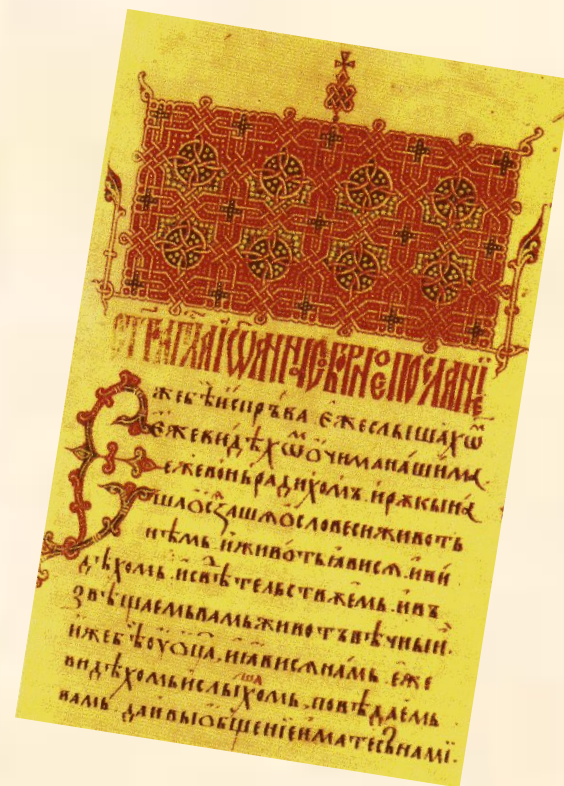 ст҃го ап҃ла іѡанна събѡрное посланїе
Єже бѣ и́спръва є́же слышахѡⷨ
є́же видѣхѡⷨ о҆чима нашима
є́же
и рѫкы на
шѧ о҆сѧзашѧ о҆ словеси живот
нѣмь. и҆ живо́ть ꙗ҆висѧ. и҆ ви
дѣхомь. и свѣⷣтельствꙋ́емь. и҆ въ
звѣщаемь вамь живо тъ вѣчныи҆.
и҆же бѣ оу҆ ѡ҆ц҃а, и ꙗ҆висѧ на́мь. є҆же
видѣхомь и слышахомь, повѣдае́мь
вамь да и вы о҆бщенїе и́мате съ нами.